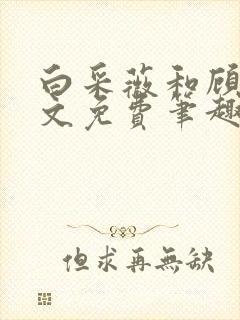 白采薇和顾
文免费笔趣
但求再無缺